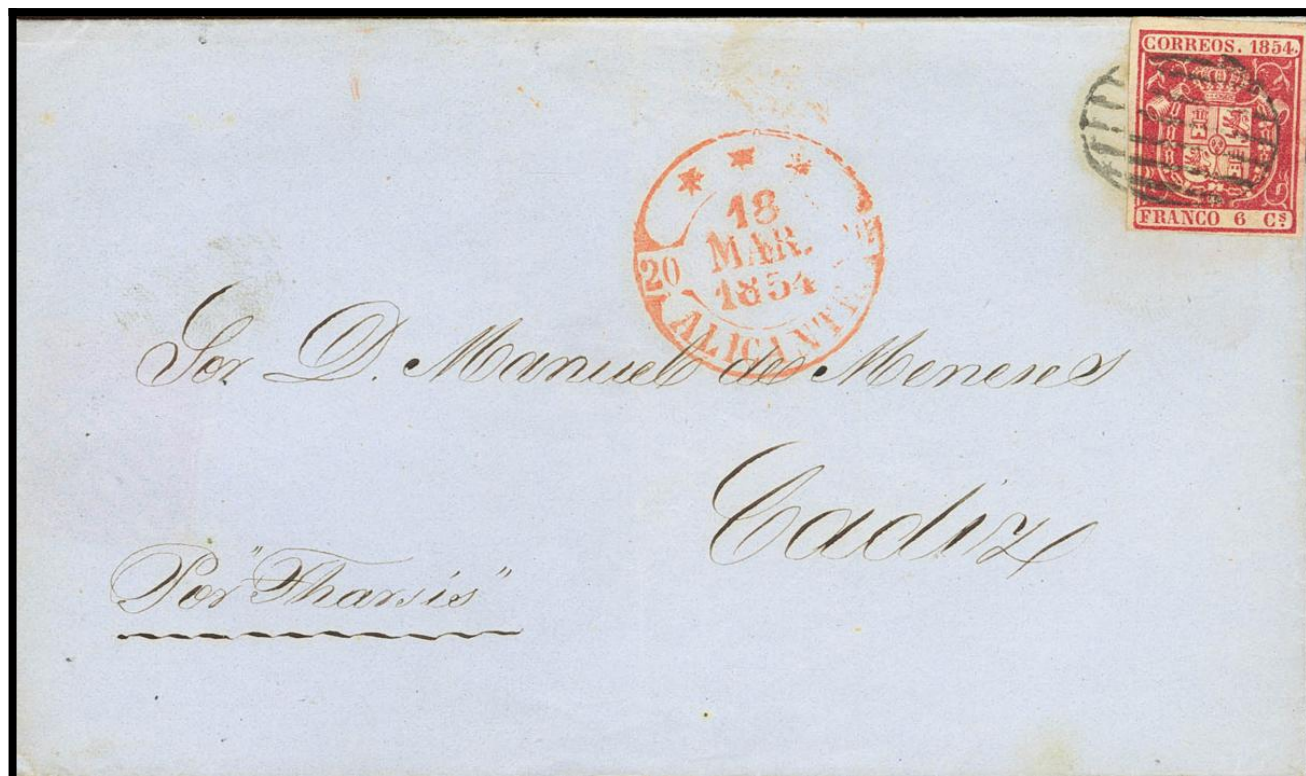 CORREOS. 1854.
FRANCO 6 Cs.
18
MAR.
1854
20
ALICANTE
Sor D. Manuel de Meneses
Cadiz
Por "Tharsis"